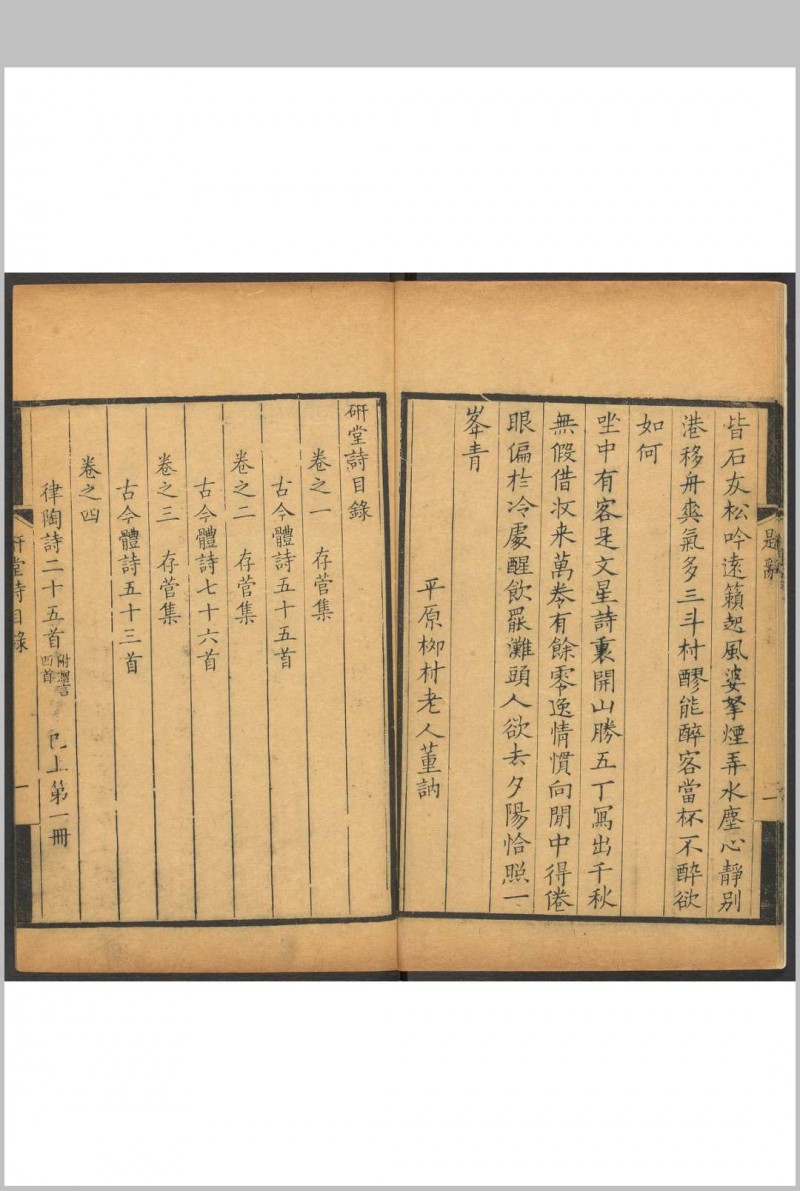 皆石友松吟遠籟起風婆拏煙弄水塵心靜别
港移舟爽氣多三斗村醪能醉客當杯不醉欲
如何
坐中有客是文星詩裏開山勝五丁寫出千秋
無假借收来萬卷有餘零逸情慣向閒中得倦
眼偏於冷處醒飲罷灘頭人欲去夕陽恰照一
峯青
平原柳村老人董訥
題辭
一
研堂詩目錄
卷之一 存菅集
古今體詩五十五首
卷之二 存菅集
古今體詩七十六首
卷之三 存菅集
古今體詩五十三首
卷之四
律陶詩二十五首 附 四首 已上第一冊
研堂詩目錄
一